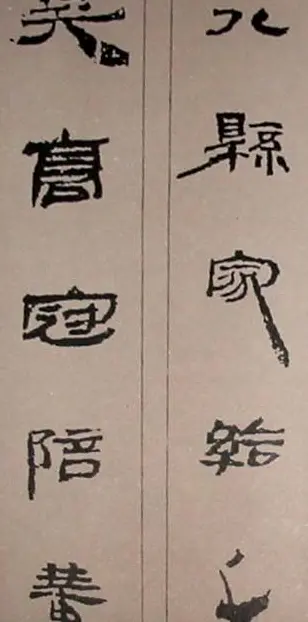 八縣家給千
兵高冠陪輦